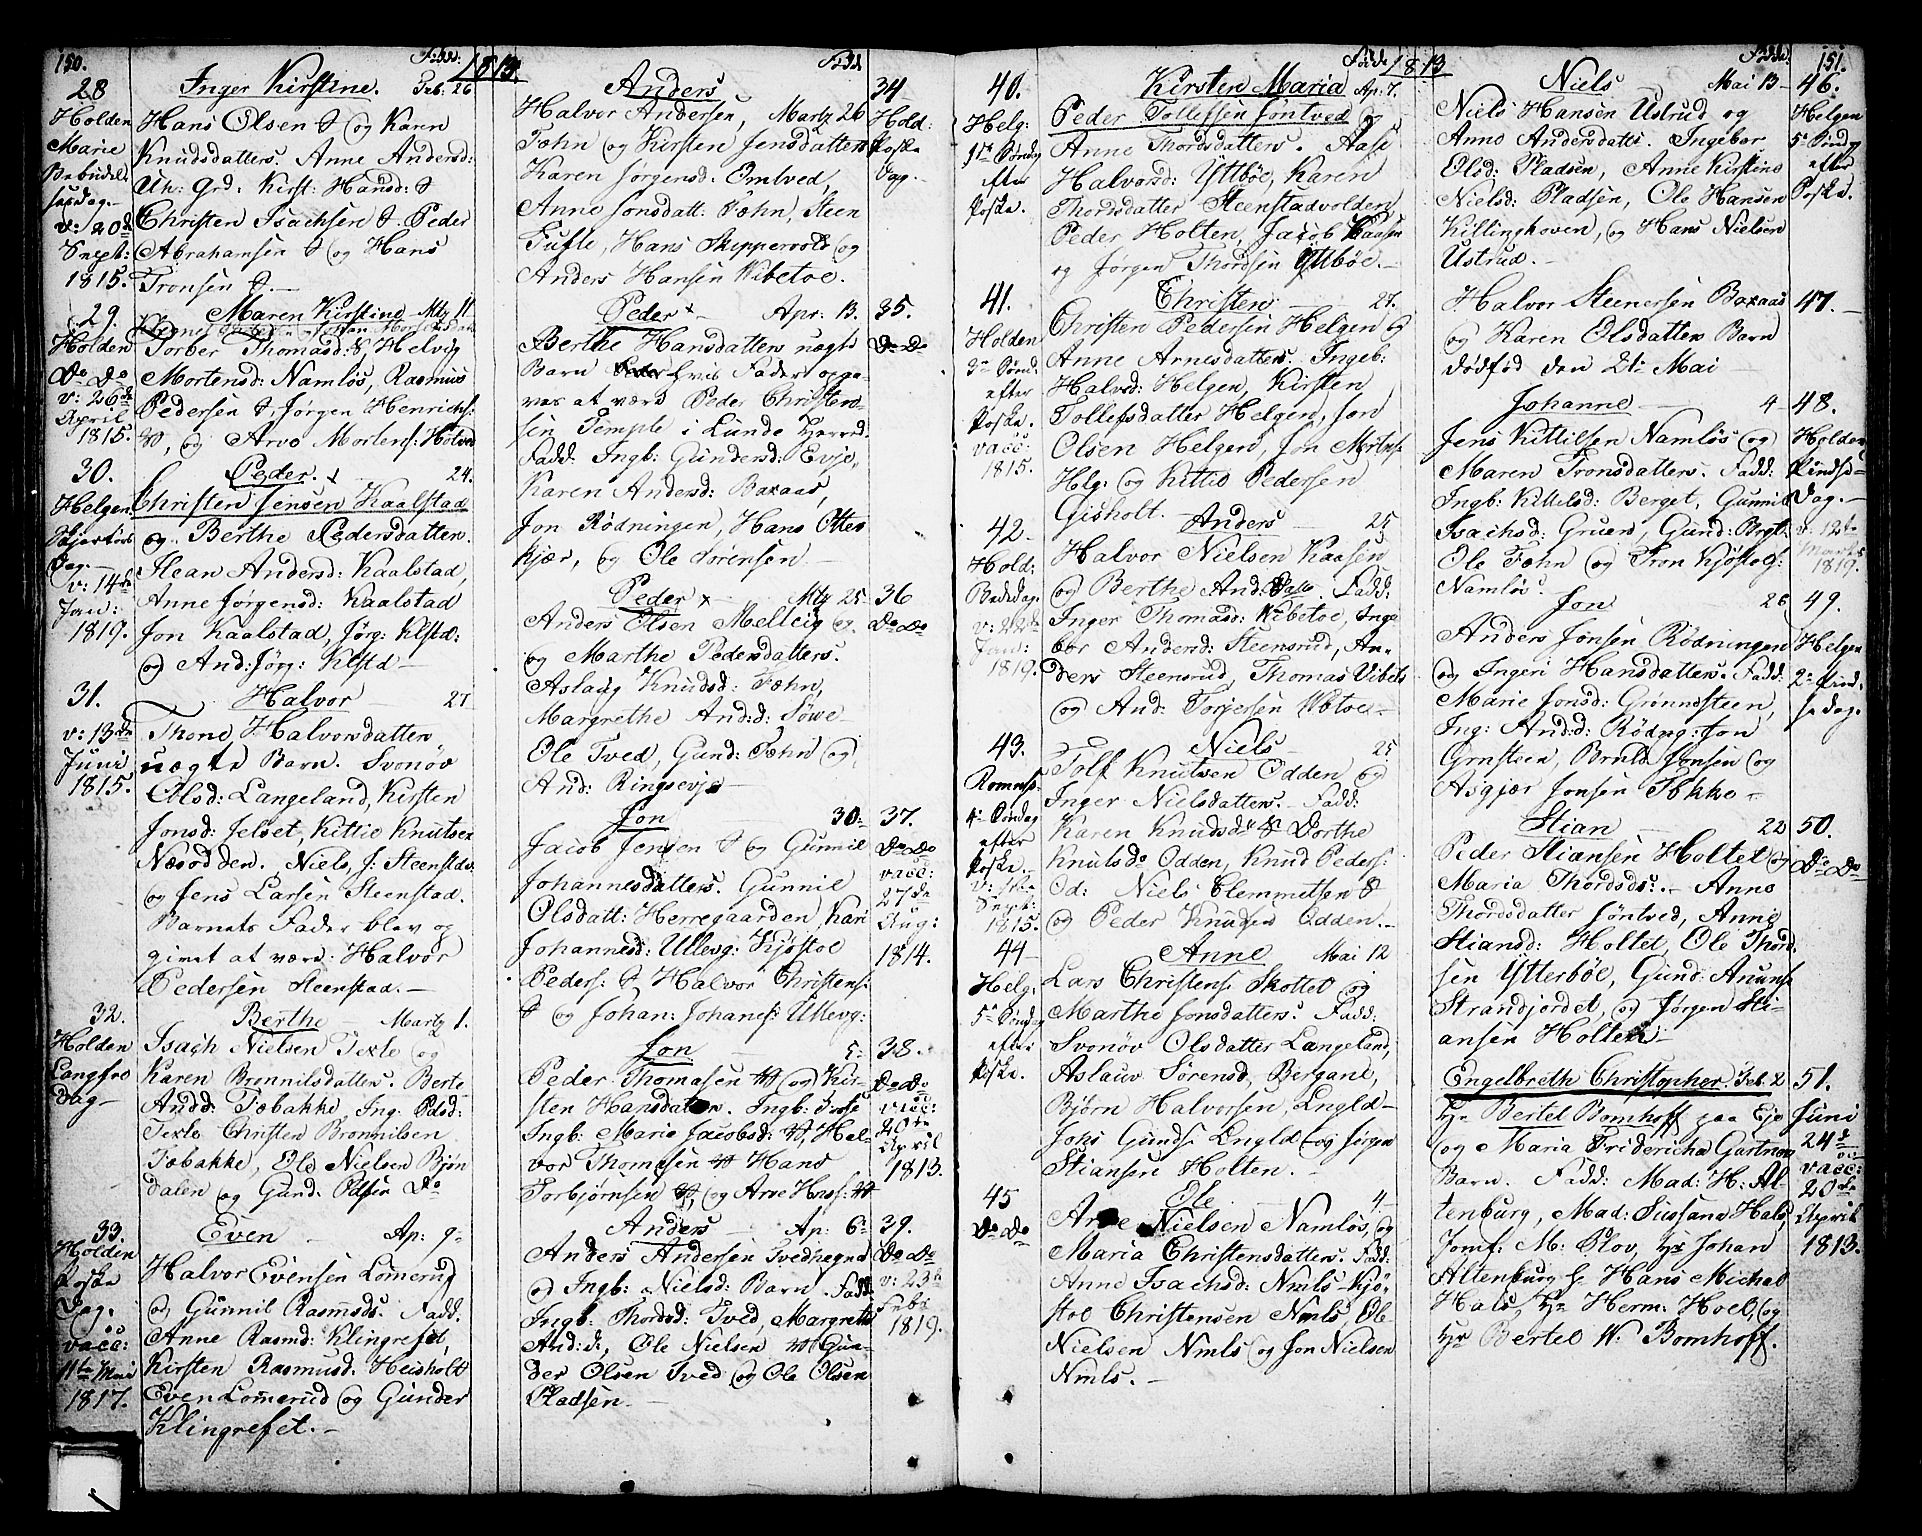 150.
Fødd:
1813
28
Holden
Marie
Bebudel
sesdag.
v: 20de
Sept:
1815.
Inger Kirstine. Feb. 26
Hans Olsen og Karen
Knudsdatter. Anne Andersd:
Kirst: Hansd:
Christen Isachsen Peder
Abrahamsen og Hans
Tronsen
29.
Holden
Do Do
v: 26de
April
1815.
Maren Kirstine Mtz 11
Torber Thomasd: Helvig
Mortensd: Namløs, Rasmus
Pedersen Jørgen Henrichs:
og Arve Mortens: Holved
30.
Helgen
Skjertors
dag.
v: 14de
Jan:
1819.
Peder. 24.
Christen Jensen Kaalstad
og Berthe Pedersdatter.
Ilean Andersd: Kaalstad,
Anne Jørgensd: Kaalstad
Jon Kaalstad, Jørg: Klstd:
og And: Jørg: Klstd
31.
v: 13de
Juni
1815.
Halvor 27
Thone Halvorsdatter
uægte Barn. Svonøv
Olsd: Langeland, Kirsten
Jonsd: Jelset, Kittil Knutsen
Næsodden. Niels J: Steenstad
og Jens Larsen Steenstad.
Barnets Fader blev op
givet at være: Halvor
Pedersen Steenstad.
32.
Holden
Langfre
dag
Berthe Martz 1.
Isach Nielsen Texle og
Karen Brønnilsdatter. Berte
Andd: Tæbakke, Ing: Pdsd:
Texle Christen Brønnilsen
Tæbakke, Ole Nielsen Bjøn
dalen og Gund: Pdsen Do
33.
Holden
Paaske
Dag.
vacc:
11te Mai
1817.
Even Ap: 9
Halvor Evensen Lomerud
og Gunnil Rasmsds. Fadd.
Anne Rasmd: Klingrefet,
Kirsten Rasmusd. Heisholt
Even Lomerud og Gunder
Klingrefet.
Fødd
Anders
Halvor Andersen, Martz 26
Fæhn og Kirsten Jensdatter
Karen Jørgensd: Omtved,
Anne Jonsdatt: Fæhn, Steen
Tufte, Hans Skippervold og
Anders Hansen Vibetoe.
34
Hold:
Paaske
Dag.
Peder Apr: 13.
Berthe Hansdatter uægte
Barn hvis Fader opga-
ves at være Peder Christen-
sen Temple i Lunde Herred.
Fadd: Ingb: Gundersd: Evje,
Karen Andersd: Baxaas,
Jon Rødningen, Hans Otter
kjær, og Ole Sørensen
35.
Do Do
Peder Mtz 25
Anders Olsen Melleig
og Marthe Pedersdatter.
Aslaug Knudsd: Fæhn,
Margrethe And:d: Søwe
Ole Tved, Gund: Fæhn og
And: Ringsevje
36
Do Do
Jon 30
Jacob Jensen og Gunnil
Johannesdatter. Gunnil
Olsdatt: Herregaarden, Kari
Johannesd: Ullevg: Kjøstol
Peders: Halvor Christens:
og Johan: Johanes: Ullevg:
37.
Do Do
vacc:
27de
Aug:
1814.
Jon 5
Peder Thomasen og Kir-
sten Hansdatter. Ingb:
Ingb: Marie Jacobsd: Hal-
vor Thomasen Hans
Torbjørnsen og Arve Hans:
38.
Do Do
vacc:
20de
April
1813.
Anders Ap: 6
Anders Andersen Tvedhegna
og Ingb: Nielsd: Barn. Fadd
Ingb: Thordsd: Tved, Margrete
And:d:, Ole Nielsen Gun-
der Olsen Tved og Ole Olsen
Pladsen.
39.
Do Do
v: 23de
Feb:
1819.
151.
Fødde
1813
40.
Helg:
1te Sønda
efter
Paaske.
Kirsten Maria Ap. 7.
Peder Tollefsen Søntved og
Anne Thordsdatter. Aase
Halvorsd: Yttbøe, Karen
Thordsdatter Steenstadvolden
Peder Holten, Jacob Kaasen
og Jørgen Thordsen Yttbøe.
41.
Holden
3e Sønd.
efter
Paaske.
vacc:
1815.
Christen 27.
Christen Pedersen Helgen og
Anne Arnesdatter. Ingeb:
Halvd: Helgen, Kirsten
Tollefsdatter Helgen, Jon
Olsen Helgen, Jon Mortens
Helg: og Kittil Pedersen
Gisholt.
42
Hold:
Bededag.
v: 22de
Jan:
1819.
Anders 25
Halvor Nielsen Kaasen
og Berthe And: Fadd:
Inger Thomasd: Vibetoe, Inge
bor Andersd: Steensrud, An-
ders Steensrud, Thomas Vibeto
og And: Torjersen Vibtoe
43.
Romnes:
4e Søndag
efter
Paaske.
Sept:
1815.
Niels 25
Tolf Knutsen Odden og
Inger Nielsdatter. Fadd:
Karen Knudsd: Dorthe
Knutsd: Odden, Knud Peders:
Od: Niels Clemmetsen
og Peder Knudsen Odden.
44
Helg:
5e Søndag
efter
Paaske.
Anne Mai 12
Lars Christens: Skottet og
Marthe Jonsdatter. Fadd:
Svonøv Olsdatter Langeland,
Aslauv Sørensd, Bergane,
Bjørn Halvorsen, Lngld
Johs Gunds: Lngld og Jørgen
Stiansen Holten.
45
Do Do
Ole 4
Arve Nielsen Namløs, og
Maria Christensdatter. Fadd:
Anne Isachsd: Nmls Kjø-
stol Christensen Nmls, Ole
Nielsen Nmls og Jon Nielsen
Nmls.
Fødde
Niels Mai 13
Niels Hansen Ustrud og
Anne Andersdatter. Ingebor
Olsd: Pladsen, Anne Kirstine
Nielsd: Pladsen, Ole Hansen
Killinghoven, og Hans Nielsen
Ustrud.
46.
Helgen
5e Sønd
efter
Paaske.
Halvor Steenersen Baxaas
og Karen Olsdatter Barn
dødfød den 21 Mai
47.
Johanne 4
Jens Kittilsen Namløs og
Maren Tronsdatter. Fadd:
Ingb: Kittelsd: Berget, Gunnil
Isachsd: Gruen, Gund: Brgt:
Ole Fæhn og Tron Kjøstols:
Namløs.
48.
Holden
Pindse-
Dag.
v: 12te
Marts
1819.
Jon 26
Anders Jonsen Rødningen
og Ingeri Hansdatter. Fadd.
Marie Jonsd: Grønnesteen,
Ing: And:d: Rødng: Jon
Grnsteen, Brnld Jonsen og
Asgjær Jonsen Tokke
49.
Helgen
2e Pind-
sedag.
Stian 22
Peder Stiansen Holtet og
Maria Thordsds: Anne
Thordsdatter Søntved, Anne
Stiansd: Holtet, Ole Thord-
sen Ytterbøe, Gund: Anuns:
Strandjordet, og Jørgen Sti-
ansen Holten
50.
Do Do
Engelbreth Christopher. Feb. 2
Hr Bertel Bomhoff paa Eje
og Maria Fridericha Gartner
Barn. Fadd: Mad: H: Al-
tenburg, Mad: Sussana Hals,
Jomf: M: Plov, Hr Johan
Altenburg Hr Hans Michal
Hals, Hr Herm: Hoel, og
Hr Bertel W. Bomhoff.
51.
Juni
24de
vacc:
20de
April
1813.